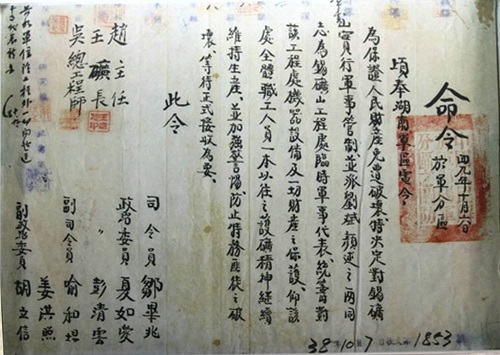 命令
四九年十月六日
於軍分區
頃奉湖南軍區電令:
為保證人民財產免遭破壞特決定對錫礦
山實行軍事管制並派劉斌顏述之兩同
志為錫礦山工程處臨時軍事代表統籌對
該工程處機器設備及一切財產之保護。仰該
處全體職工人員一本以往之護礦精神繼續
維持生產、並加強警惕防止特務匪徒之破
壞、等待正式接收為要。
此令
司令員 鄒畢兆
政治委員 夏如愛
〃 彭清雲
副司令員 喻和坦
姜洪照
副政治委員 胡立信
趙主任
王礦長
吳總工程師
38年10月7日 1853